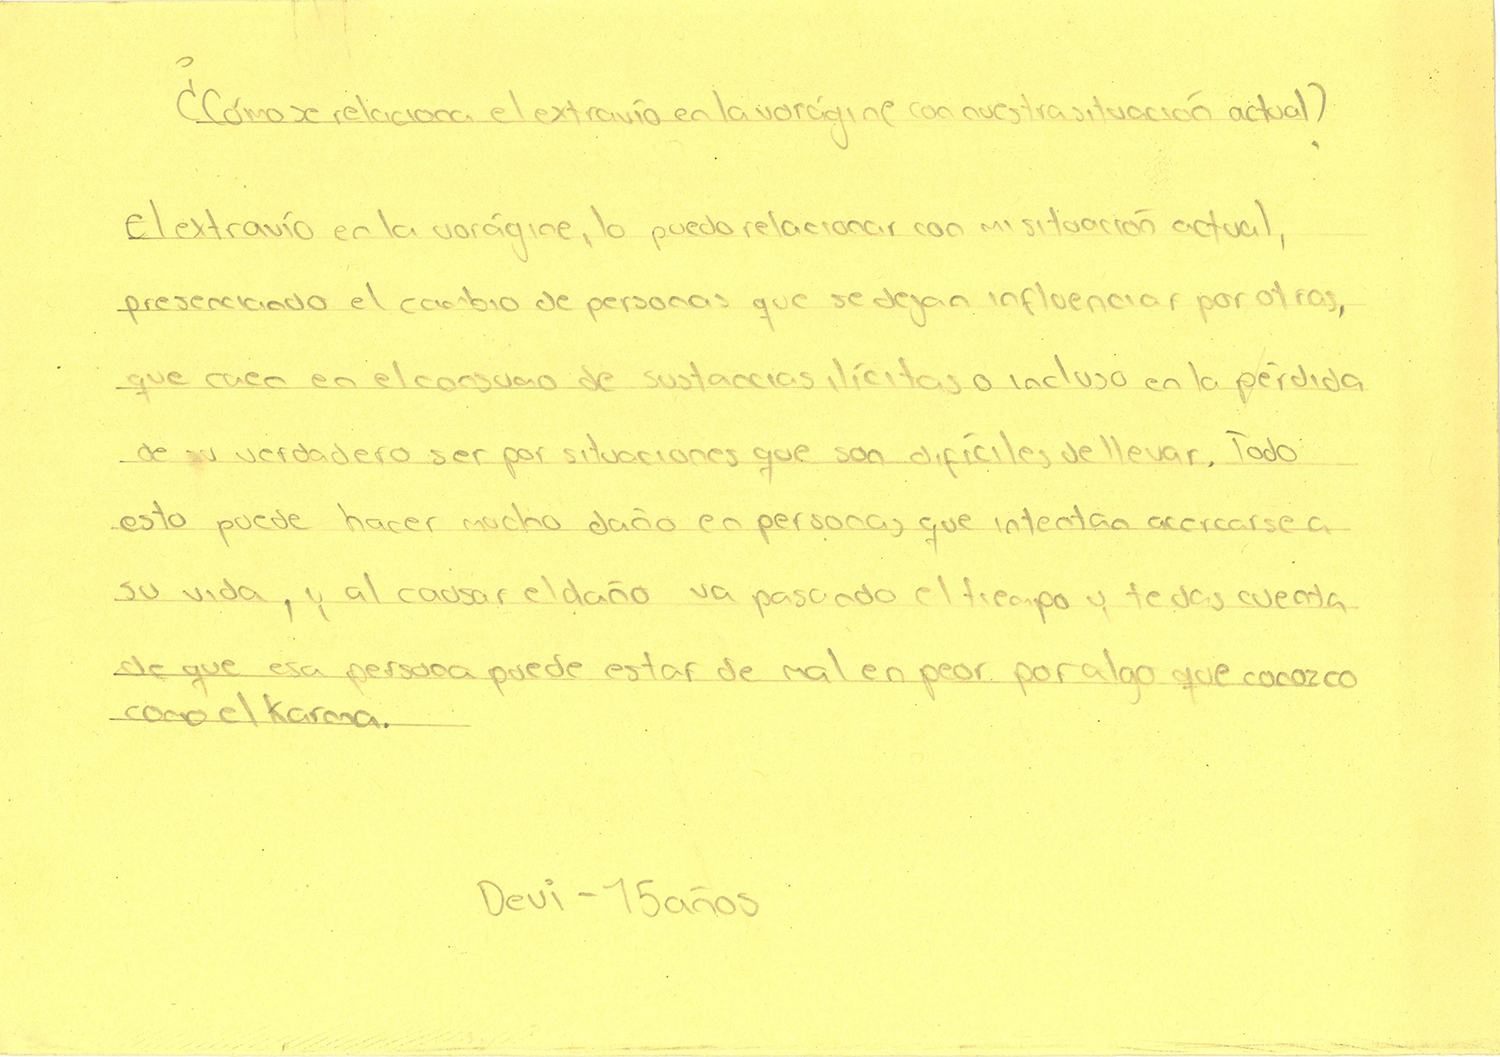 ¿Cómo se relaciona el extravío en la vorágine con nuestra situación actual?
El extravío en la vorágine, lo puedo relacionar con mi situación actual,
presenciando el cambio de personas que se dejan influenciar por otras,
que caen en el consumo de sustancias ilícitas o incluso en la pérdida
de su verdadero ser por situaciones que son difíciles de llevar. Todo
esto puede hacer mucho daño en personas que intentan acercarse a
su vida, y al causar el daño va pasando el tiempo y te das cuenta
de que esa persona puede estar de mal en peor por algo que conozco
como el Karma.
Devi - 15 años